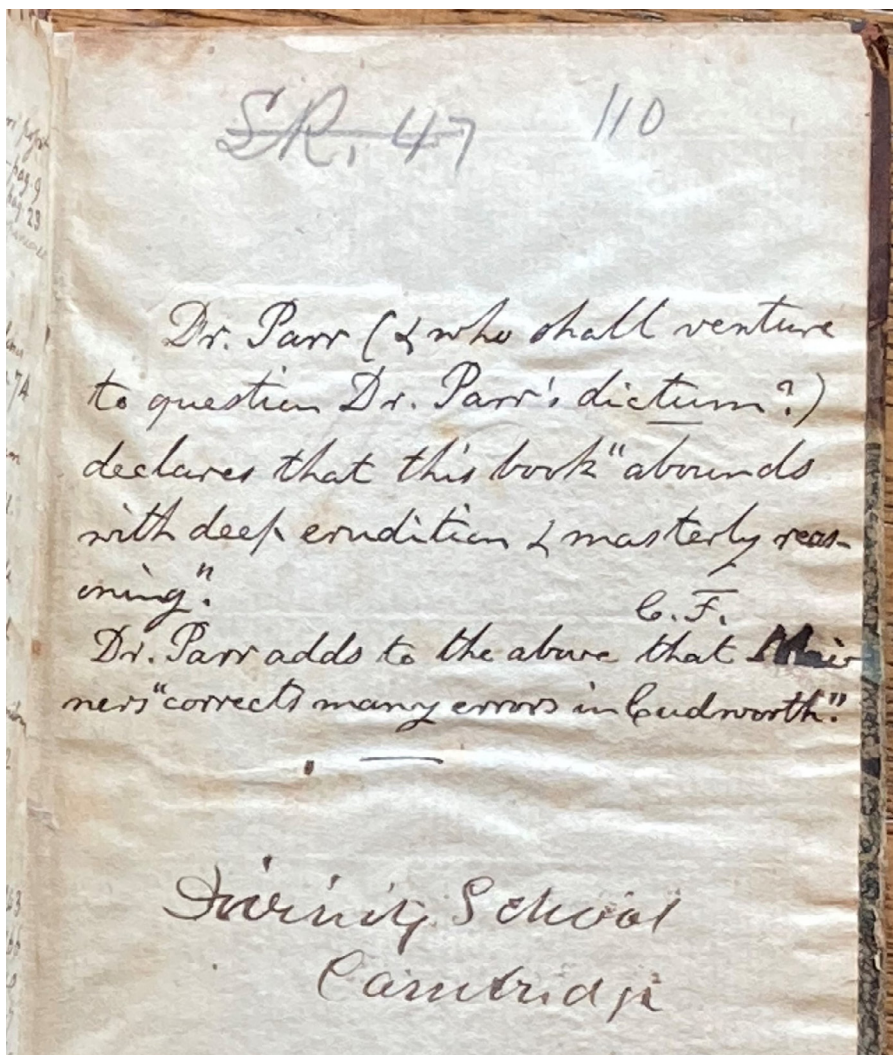 SR. 47 110
Dr. Parr (& who shall venture
to question Dr. Parr's dictum?)
declares that this book "abounds
with deep erudition & masterly reas-
oning".
C. F.
Dr. Parr adds to the above that Mei-
ners "corrects many errors in Cudworth."
Divinity School
Cambridge
pag. 9
pag. 23
74